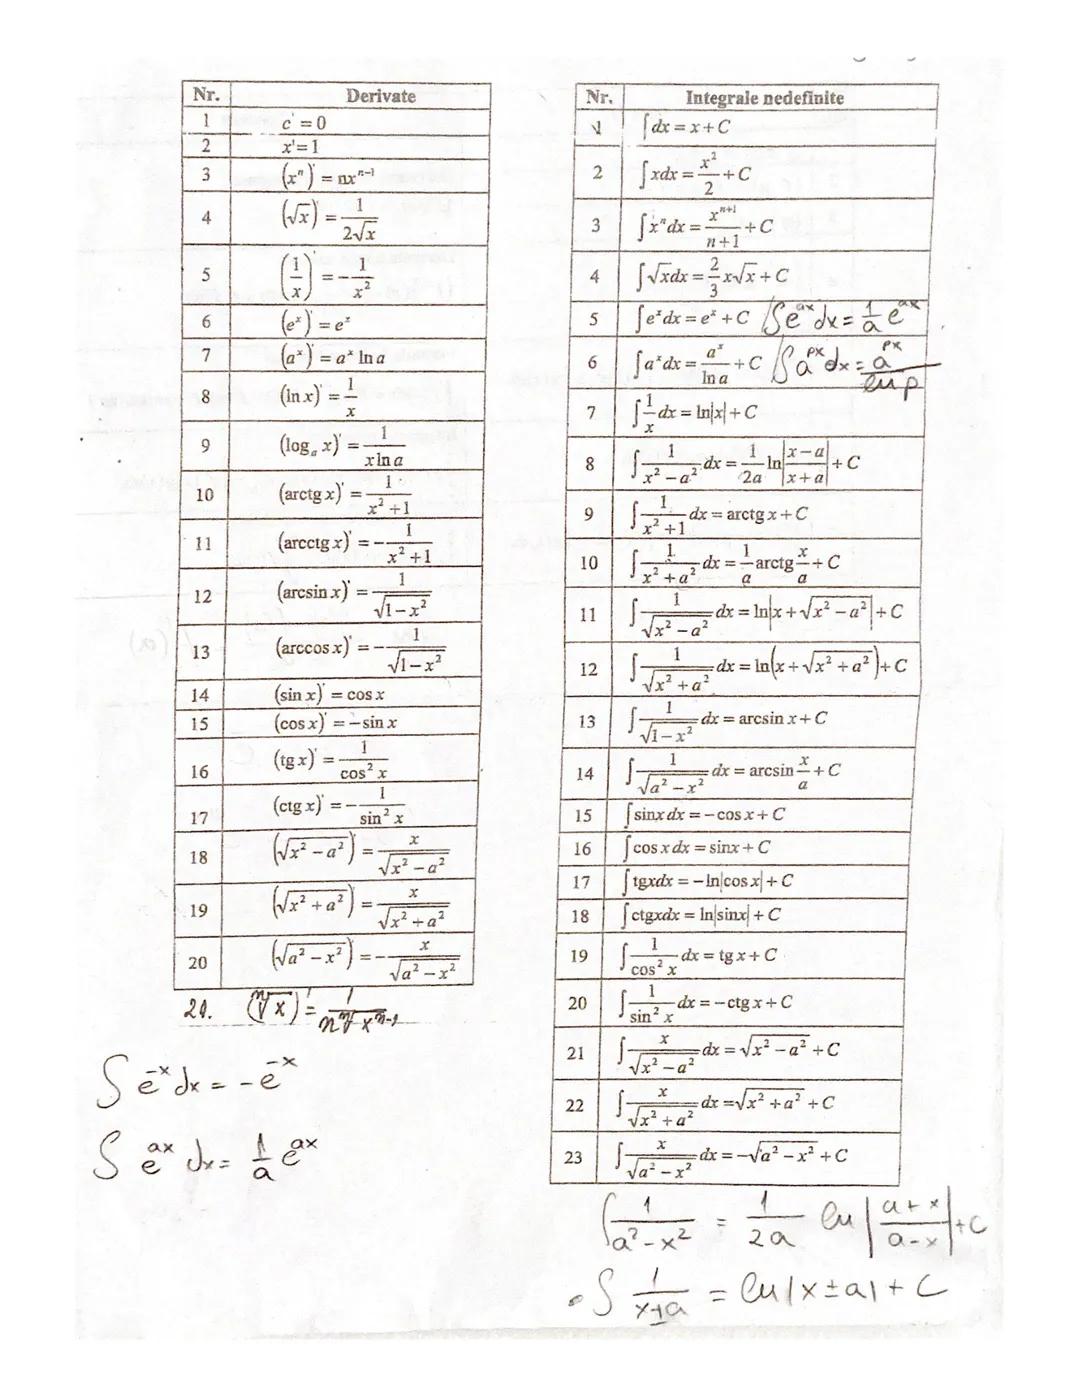 Nr. Derivate
1 c' = 0
2 x' = 1
3 (xⁿ)' = nxⁿ⁻¹
4 (√x)' = 1/(2√x)
5 (1/x)' = -1/x²
6 (eˣ)' = eˣ
7 (aˣ)' = aˣ ln a
8 (ln x)' = 1/x
9 (logₐ x)' = 1/(x ln a)
10 (arctg x)' = 1/(x² + 1)
11 (arcctg x)' = -1/(x² + 1)
12 (arcsin x)' = 1/√(1-x²)
13 (arccos x)' = -1/√(1-x²)
14 (sin x)' = cos x
15 (cos x)' = -sin x
16 (tg x)' = 1/cos² x
17 (ctg x)' = -1/sin² x
18 (√(x² - a²))' = x/√(x² - a²)
19 (√(x² + a²))' = x/√(x² + a²)
20 (√(a² - x²))' = -x/√(a² - x²)
21. (ⁿ√x)' = 1/(n ⁿ√xⁿ⁻¹)
∫e⁻ˣ dx = -e⁻ˣ
∫e^(ax) dx = 1/a e^(ax)
Nr. Integrale nedefinite
1 ∫dx = x + C
2 ∫xdx = x²/2 + C
3 ∫xⁿdx = xⁿ⁺¹/(n+1) + C
4 ∫√xdx = 2/3 x√x + C
5 ∫eˣdx = eˣ + C ∫e^(ax) dx = 1/a e^(ax)
6 ∫aˣdx = aˣ/ln a + C ∫a^(px) dx = a^(px)/ln p
7 ∫1/x dx = ln|x| + C
8 ∫1/(x² - a²) dx = 1/2a ln|(x-a)/(x+a)| + C
9 ∫1/(x² + 1) dx = arctg x + C
10 ∫1/(x² + a²) dx = 1/a arctg x/a + C
11 ∫1/√(x² - a²) dx = ln|x + √(x² - a²)| + C
12 ∫1/√(x² + a²) dx = ln(x + √(x² + a²)) + C
13 ∫1/√(1-x²) dx = arcsin x + C
14 ∫1/√(a² - x²) dx = arcsin x/a + C
15 ∫sinx dx = -cos x + C
16 ∫cos x dx = sinx + C
17 ∫tgxdx = -ln|cos x| + C
18 ∫ctgxdx = ln|sinx| + C
19 ∫1/cos² x dx = tg x + C
20 ∫1/sin² x dx = -ctg x + C
21 ∫x/√(x² - a²) dx = √(x² - a²) + C
22 ∫x/√(x² + a²) dx = √(x² + a²) + C
23 ∫x/√(a² - x²) dx = -√(a² - x²) + C
∫1/(a² - x²) = 1/2a ln|(a+x)/(a-x)| + C
∫1/(x±a) = ln|x±a| + C